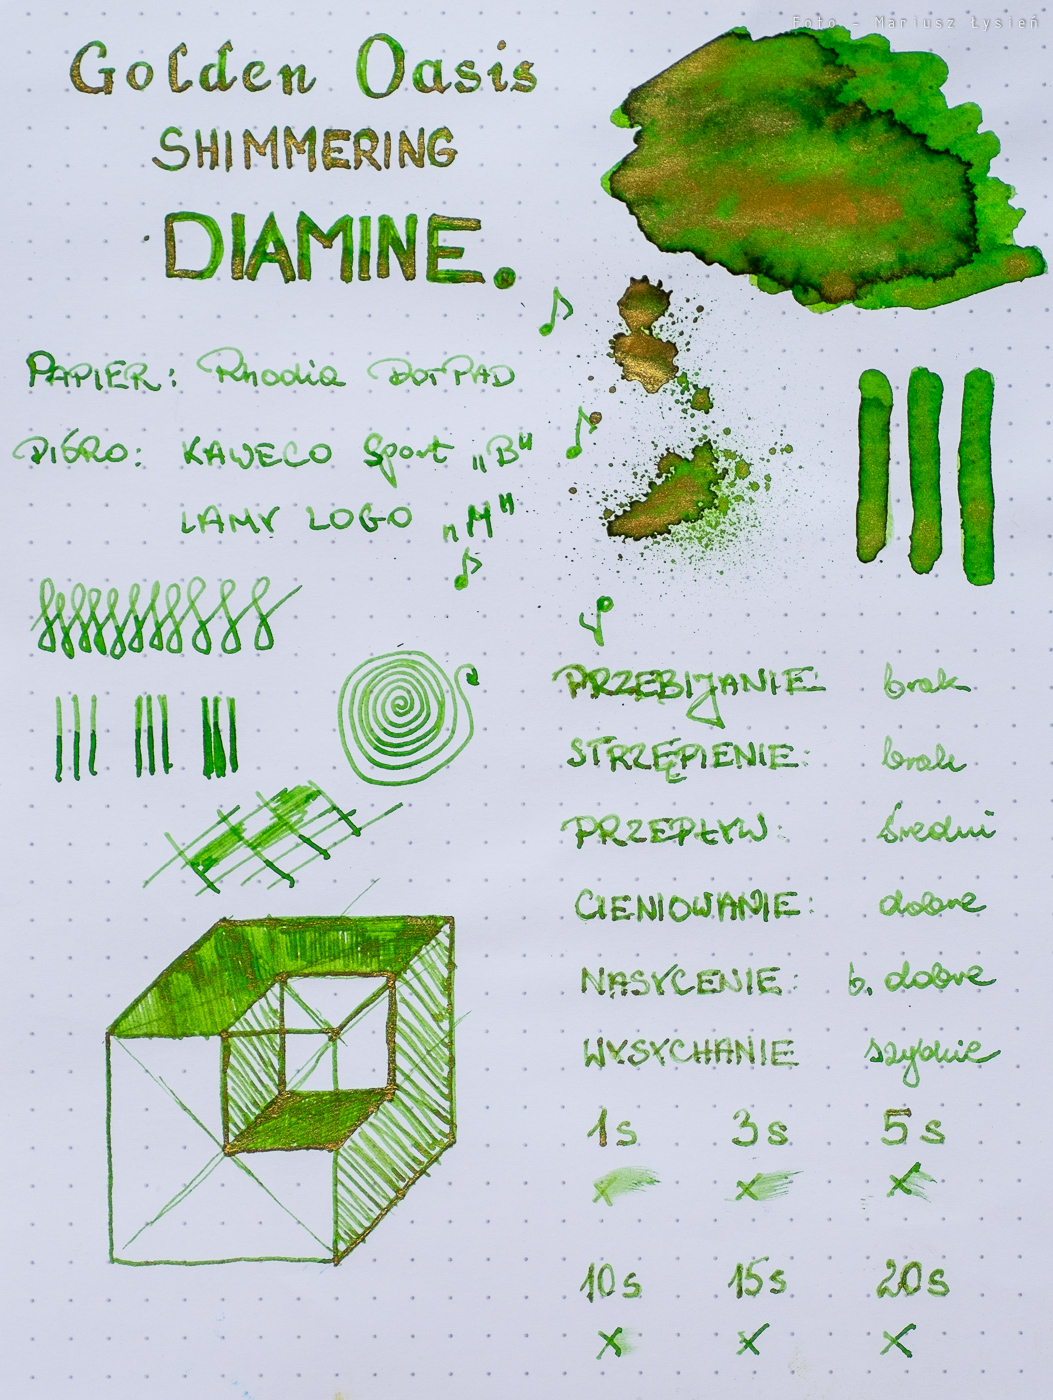 Foto - Mariusz Łysień
Golden Oasis
SHIMMERING
DIAMINE.
PAPIER: Rhodia DOTPAD
PIÓRO: KAWECO Sport „B"
LAMY LOGO „M"
PRZEBIJANIE: brak
STRZĘPIENIE: brak
PRZEPŁYW: średni
CIENIOWANIE: dobre
NASYCENIE: b. dobre
WYSYCHANIE szybkie
1s 3s 5s
x x x
10s 15s 20s
x x x